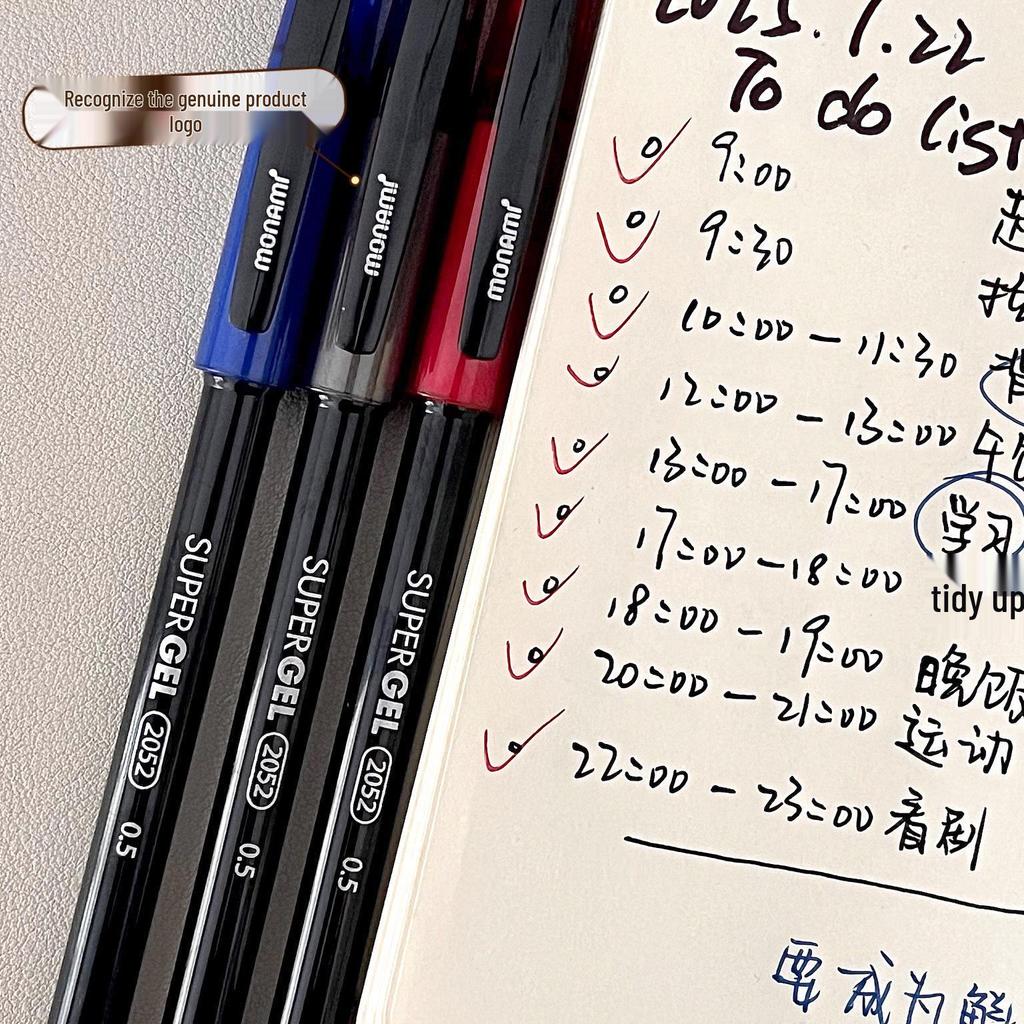 Recognize the genuine product
logo
monami
monami
monami
SUPER GEL 2052 0.5
SUPER GEL 2052 0.5
SUPER GEL 2052 0.5
2025.1.22
To do list
9:00
9:30
10:00 - 11:30 背
12:00 - 13:00 午饭
13:00 - 17:00 学习
17:00 - 18:00 tidy up
18:00 - 19:00 晚饭
20:00 - 21:00 运动
22:00 - 23:00 看剧
要成为